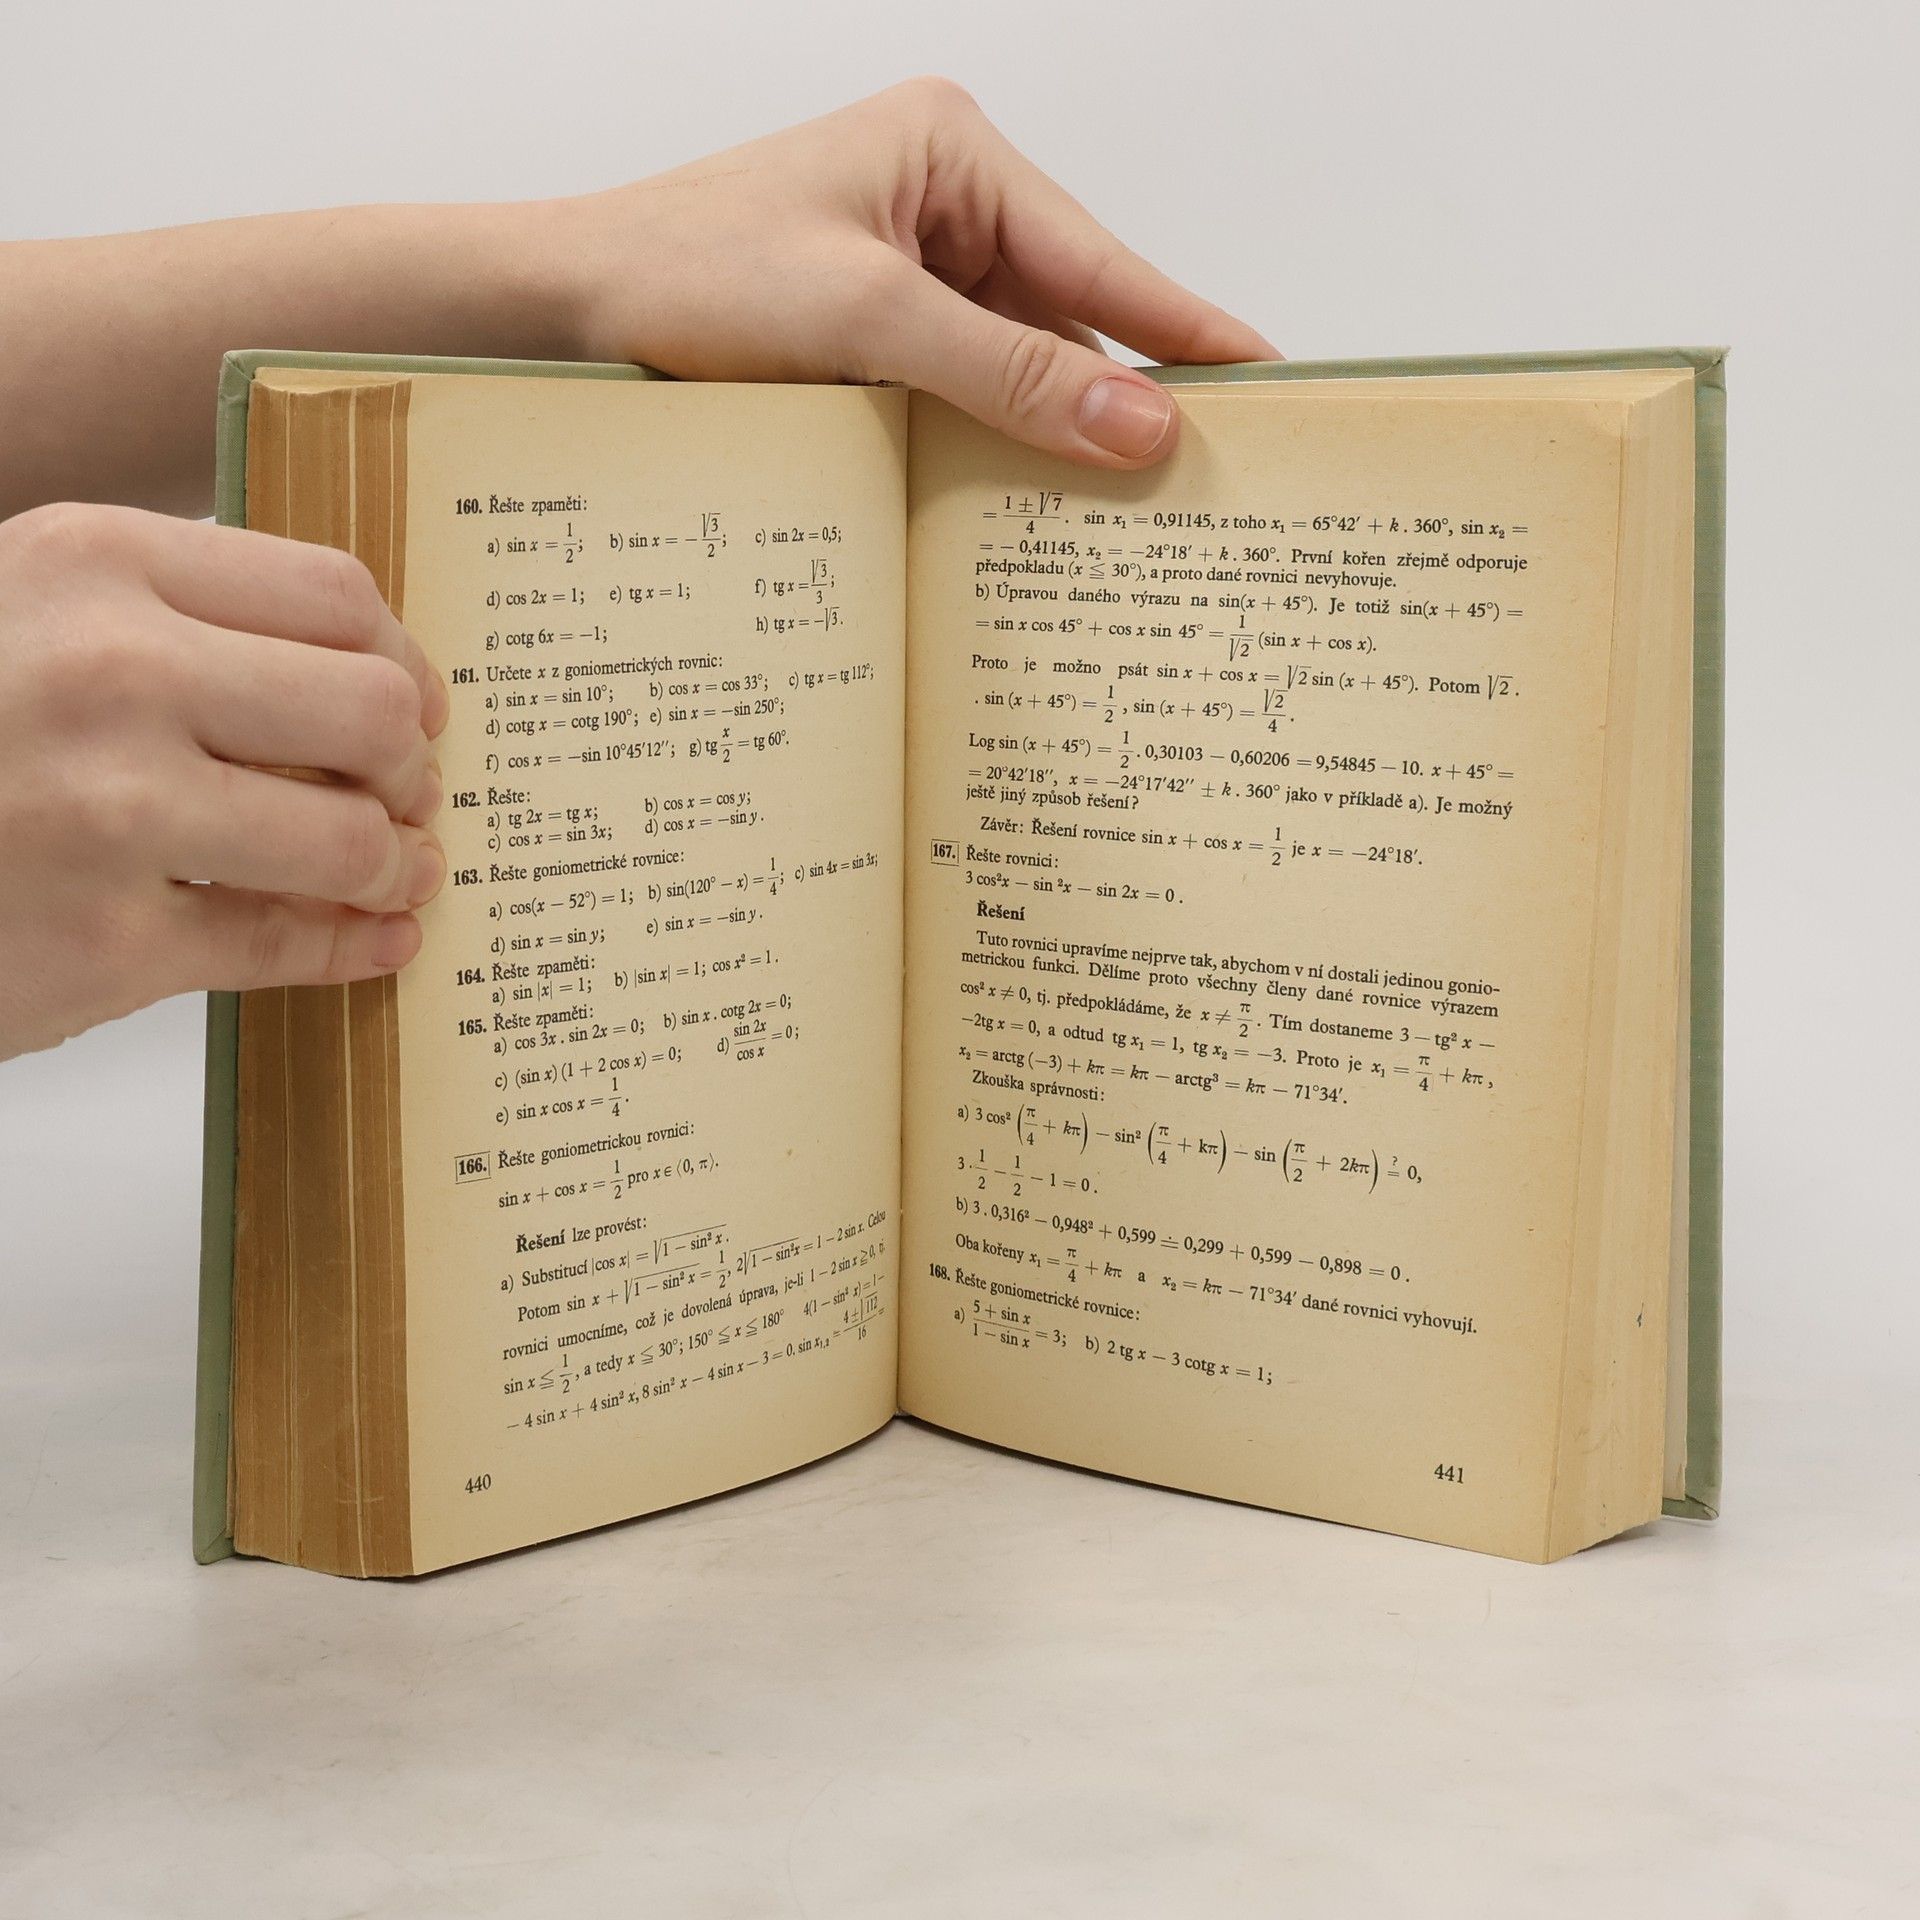 160. Řešte zpaměti:
a) sin x = 1/2; b) sin x = − √3/2; c) sin 2x = 0,5;
d) cos 2x = 1; e) tg x = 1; f) tg x = √3/3;
g) cotg 6x = −1; h) tg x = −√3.
161. Určete x z goniometrických rovnic:
a) sin x = sin 10°; b) cos x = cos 33°; c) tg x = tg 112°;
d) cotg x = cotg 190°; e) sin x = −sin 250°;
f) cos x = −sin 10°45′12″; g) tg x/2 = tg 60°.
162. Řešte:
a) tg 2x = tg x; b) cos x = cos y;
c) cos x = sin 3x; d) cos x = −sin y.
163. Řešte goniometrické rovnice:
a) cos(x − 52°) = 1; b) sin(120° − x) = 1/4; c) sin 4x = sin 3x;
d) sin x = sin y; e) sin x = −sin y.
164. Řešte zpaměti:
a) sin |x| = 1; b) |sin x| = 1; cos x² = 1.
165. Řešte zpaměti:
a) cos 3x . sin 2x = 0; b) sin x . cotg 2x = 0;
c) (sin x) (1 + 2 cos x) = 0; d) sin 2x/cos x = 0;
e) sin x cos x = 1/4.
166. Řešte goniometrickou rovnici:
sin x + cos x = 1/2 pro x ∈ ⟨0, π⟩.
Řešení lze provést:
a) Substitucí |cos x| = √(1 − sin² x).
Potom sin x + √(1 − sin² x) = 1/2, 2√(1 − sin²x) = 1 − 2 sin x. Celou
rovnici umocníme, což je dovolená úprava, je-li 1 − 2 sin x ≧ 0, tj.
sin x ≦ 1/2, a tedy x ≦ 30°; 150° ≦ x ≦ 180° 4(1 − sin² x) = 1 −
− 4 sin x + 4 sin² x, 8 sin² x − 4 sin x − 3 = 0. sin x₁,₂ = (4 ± √112)/16 =
440
= (1 ± √7)/4 . sin x₁ = 0,91145, z toho x₁ = 65°42′ + k . 360°, sin x₂ =
= − 0,41145, x₂ = −24°18′ + k . 360°. První kořen zřejmě odporuje
předpokladu (x ≦ 30°), a proto dané rovnici nevyhovuje.
b) Úpravou daného výrazu na sin(x + 45°). Je totiž sin(x + 45°) =
= sin x cos 45° + cos x sin 45° = 1/√2 (sin x + cos x).
Proto je možno psát sin x + cos x = √2 sin (x + 45°). Potom √2 .
. sin (x + 45°) = 1/2 , sin (x + 45°) = √2/4 .
Log sin (x + 45°) = 1/2 . 0,30103 − 0,60206 = 9,54845 − 10. x + 45° =
= 20°42′18″, x = −24°17′42″ ± k . 360° jako v příkladě a). Je možný
ještě jiný způsob řešení?
Závěr: Řešení rovnice sin x + cos x = 1/2 je x = −24°18′.
167. Řešte rovnici:
3 cos²x − sin ²x − sin 2x = 0 .
Řešení
Tuto rovnici upravíme nejprve tak, abychom v ní dostali jedinou gonio-
metrickou funkci. Dělíme proto všechny členy dané rovnice výrazem
cos² x ≠ 0, tj. předpokládáme, že x ≠ π/2 . Tím dostaneme 3 − tg² x −
−2tg x = 0, a odtud tg x₁ = 1, tg x₂ = −3. Proto je x₁ = π/4 + kπ ,
x₂ = arctg (−3) + kπ = kπ − arctg³ = kπ − 71°34′.
Zkouška správnosti:
a) 3 cos² (π/4 + kπ) − sin² (π/4 + kπ) − sin (π/2 + 2kπ) ≟ 0,
3 . 1/2 − 1/2 − 1 = 0 .
b) 3 . 0,316² − 0,948² + 0,599 ≐ 0,299 + 0,599 − 0,898 = 0 .
Oba kořeny x₁ = π/4 + kπ a x₂ = kπ − 71°34′ dané rovnici vyhovují.
168. Řešte goniometrické rovnice:
a) (5 + sin x)/(1 − sin x) = 3; b) 2 tg x − 3 cotg x = 1;
441